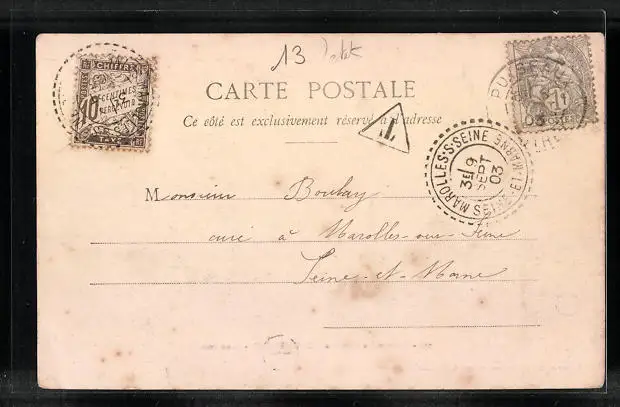 13
CHIFFRE
10
CENTIMES
A
PERCEVOIR
TAXE
CARTE POSTALE
Ce côté est exclusivement réservé à l'adresse
T
PU
03
1c
POSTES
MAROLLES-S-SEINE
3E/9
SEPT
03
Monsieur Boubay
curé à Marolles-sur-Seine
Seine-et-Marne